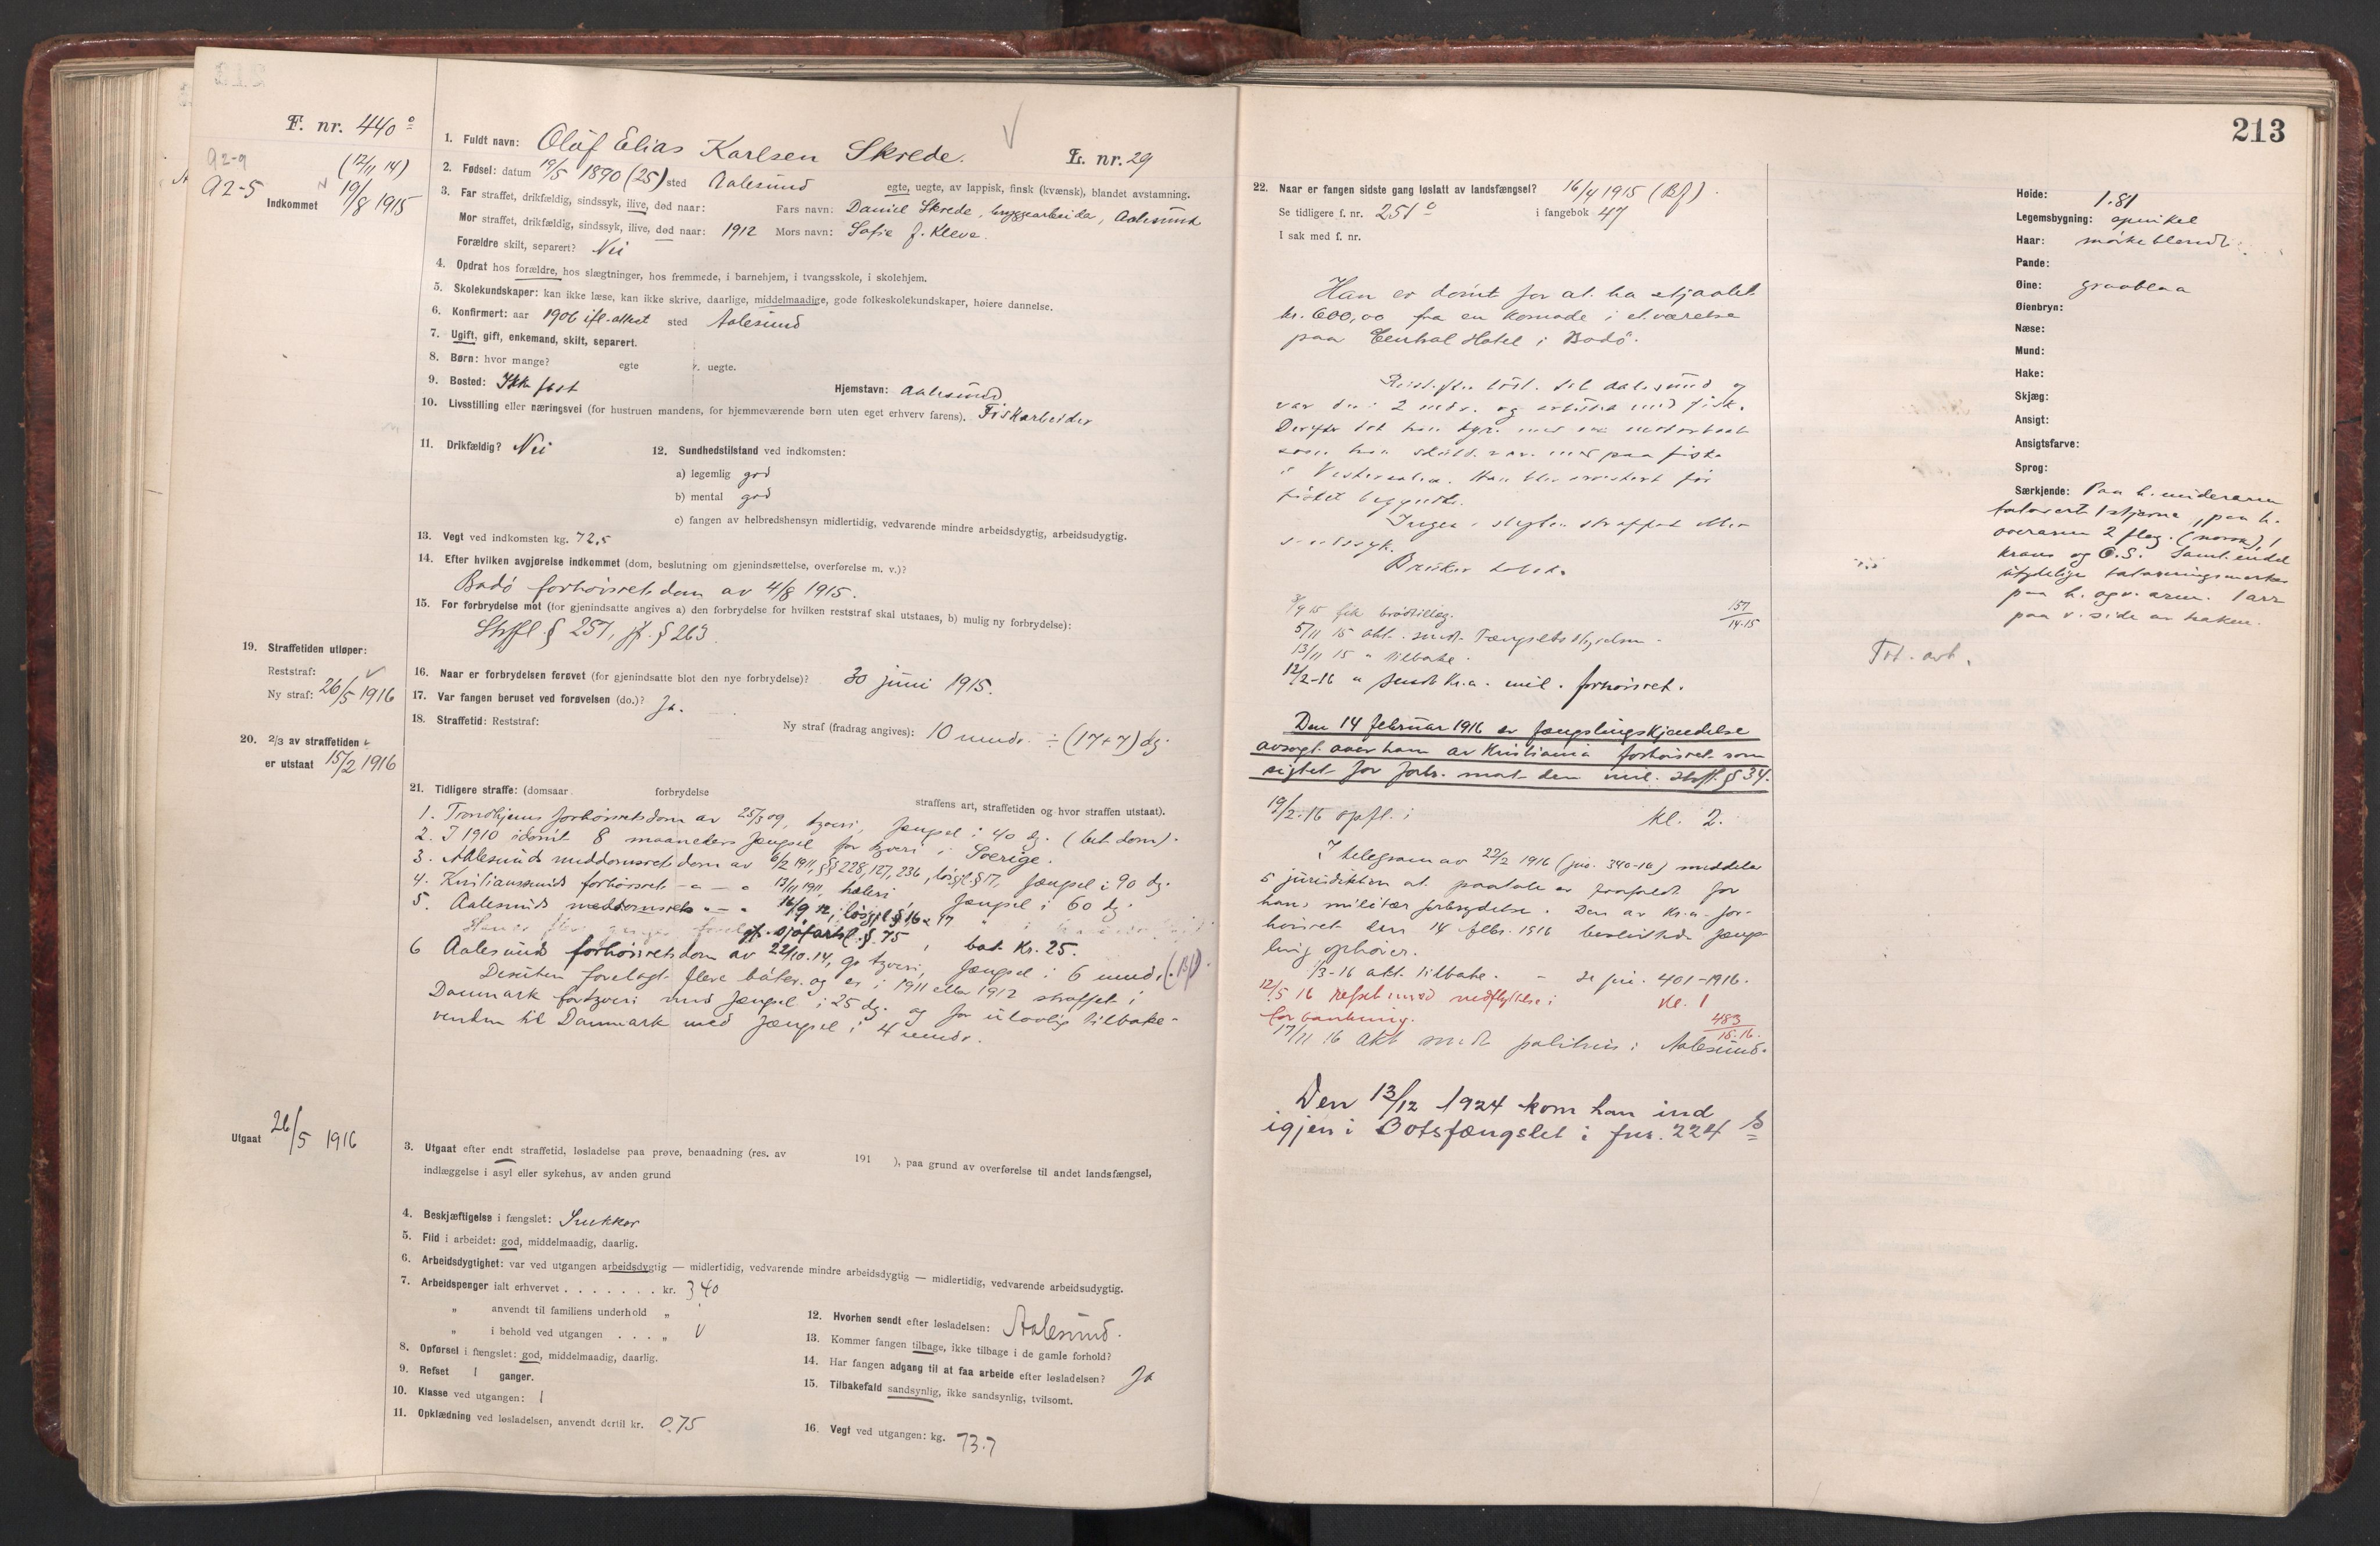 F. nr. 440 o
(12/11 14)
A2-9
A2-5
Indkommet 19/8 1915
1. Fuldt navn: Oluf Elias Karlsen Skrede.
L. nr. 29
2. Fødsel: datum 19/5 1890 (25) sted Aalesund
egte, uegte, av lappisk, finsk (kvænsk), blandet avstamning.
3. Far straffet, drikfældig, sindssyk, ilive, død naar: Fars navn: Daniel Skrede, bryggearbeider, Aalesund
Mor straffet, drikfældig, sindssyk, ilive, død naar: 1912 Mors navn: Sofie f. Kleve.
Forældre skilt, separert? Nei
4. Opdrat hos forældre, hos slægtninger, hos fremmede, i barnehjem, i tvangsskole, i skolehjem.
5. Skolekundskaper: kan ikke læse, kan ikke skrive, daarlige, middelmaadige, gode folkeskolekundskaper, høiere dannelse.
6. Konfirmert: aar 1906 ifl. attest sted Aalesund
7. Ugift, gift, enkemand, skilt, separert.
8. Børn: hvor mange? egte uegte.
9. Bosted: Ikke fast Hjemstavn: Aalesund
10. Livsstilling eller næringsvei (for hustruen mandens, for hjemmeværende børn uten eget erhverv farens). Fiskarbeider
11. Drikfældig? Nei 12. Sundhedstilstand ved indkomsten:
a) legemlig god
b) mental god
c) fangen av helbredshensyn midlertidig, vedvarende mindre arbeidsdygtig, arbeidsudygtig.
13. Vegt ved indkomsten kg. 72,5
14. Efter hvilken avgjørelse indkommet (dom, beslutning om gjenindsættelse, overførelse m. v.)?
Bodö forhörsretsdom av 4/8 1915.
15. For forbrydelse mot (for gjenindsatte angives a) den forbrydelse for hvilken reststraf skal utstaaes, b) mulig ny forbrydelse):
Strfl. § 257, jf. § 263.
19. Straffetiden utløper:
Reststraf:
Ny straf: 26/5 1916
16. Naar er forbrydelsen forøvet (for gjenindsatte blot den nye forbrydelse)? 30 juni 1915.
17. Var fangen beruset ved forøvelsen (do.)? Ja.
18. Straffetid: Reststraf: Ny straf (fradrag angives): 10 mndr. ÷ (17+7) dg
20. 2/3 av straffetiden
er utstaat 15/2 1916
21. Tidligere straffe: (domsaar forbrydelse straffens art, straffetiden og hvor straffen utstaat).
1. Trondhjems forhörsretsdom av 25/3 09, tyveri, fængsel i 40 dg. (bet. dom).
2. I 1910 idömt 8 maaneders fængsel for tyveri i Sverige.
3. Aalesunds meddomsretsdom av 6/2 1911, §§ 228, 127, 236, lösgl. § 17, fængsel i 90 dg.
4. Kristianssunds forhörsret - " - " 13/11 1911, heleri, fængsel i 60 dg.
5. Aalesunds meddomsrets - " 16/9 12, lösgjl. § 16 & 17
jf. sjöfartsl. § 75, bot kr. 25.
6 Aalesunds forhörsretsdom av 22/10.14, gr. tyveri, fængsel i 6 mndr. (Bf).
Desuten forelagt flere böter og er i 1911 eller 1912 straffet i
Danmark for tyveri med fængsel i 25 dg. og for ulovlig tilbake-
venden til Danmark med fængsel i 4 mndr.
Utgaat 26/5 1916
3. Utgaat efter endt straffetid, løsladelse paa prøve, benaadning (res. av 191 ), paa grund av overførelse til andet landsfængsel,
indlæggelse i asyl eller sykehus, av anden grund
4. Beskjæftigelse i fængslet: Snekker
5. Flid i arbeidet: god, middelmaadig, daarlig.
6. Arbeidsdygtighet: var ved utgangen arbeidsdygtig — midlertidig, vedvarende mindre arbeidsdygtig — midlertidig, vedvarende arbeidsudygtig.
7. Arbeidspenger ialt erhvervet . . . . . . . kr. 340
" anvendt til familiens underhold "
" i behold ved utgangen . . . "
8. Opførsel i fængslet: god, middelmaadig, daarlig.
9. Refset 1 ganger.
10. Klasse ved utgangen: 1
11. Opklædning ved løsladelsen, anvendt dertil kr. 0.75
12. Hvorhen sendt efter løsladelsen: Aalesund.
13. Kommer fangen tilbage, ikke tilbage i de gamle forhold?
14. Har fangen adgang til at faa arbeide efter løsladelsen? Ja
15. Tilbakefald sandsynlig, ikke sandsynlig, tvilsomt.
16. Vegt ved utgangen: kg. 73.7
213
22. Naar er fangen sidste gang løslatt av landsfængsel? 16/4 1915 (Bf).
Se tidligere f. nr. 251 o i fangebok 47
I sak med f. nr.
Han er dömt for at ha stjaalet
kr. 600,00 fra en komode i et værelse
paa Central Hotel i Bodö.
Reiste efter lösl. til Aalesund og
var der i 2 mdr. og arbeidet med fisk.
Derefter tok han hyre med en motorbaat
som han skulde være med paa fiske
i Vesteraalen. Han blev arrestert för
fisket begyndte.
Ingen i slegten straffet eller
sindssyk.
Bruker tobak.
9 15 fik brödtillæg. 157/14-15
5/11 15 akt. sendt Fængselsstyrelsen.
13/11 15 " tilbake.
12/2-16 " sendt Kr.a. mil. forhörsret.
Den 14 februar 1916 er fængslingskjendelse
avsagt over ham av Kristiania forhörsret som
sigtet for forbr. mot den mil. strfl. § 34.
19/2-16 opfl. i kl. 2.
I telegram av 22/2 1916 (jno. 340-16) meddeler
5 jurisdiktion at paatale er frafaldt for
hans militær forbrydelse. Den av Kr.a. for-
hörsret den 14 febr. 1916 besluttede fængs-
ling ophører.
1/3-16 akt. tilbake. - se jno. 401-1916.
12/5 16 refset med nedflyttelse i kl. 1
for bankning. 483/15-16.
17/11 16 akt sendt politim. i Aalesund.
Den 13/12 1924 kom han ind
igjen i Botsfængslet i fnr. 224 b
Høide: 1.81
Legemsbygning: spinkel
Haar: mörkeblondt
Pande:
Øine: graablaa
Øienbryn:
Næse:
Mund:
Hake:
Skjæg:
Ansigt:
Ansigtsfarve:
Sprog:
Særkjende: Paa h. underarm
tatovert 1 stjerne, paa h.
overarm 2 flag. (norsk), 1
krans og O.S. Samt endel
utydelige tatoveringsmerker
paa h. og v. arm. 1 arr
paa v. side av haken.